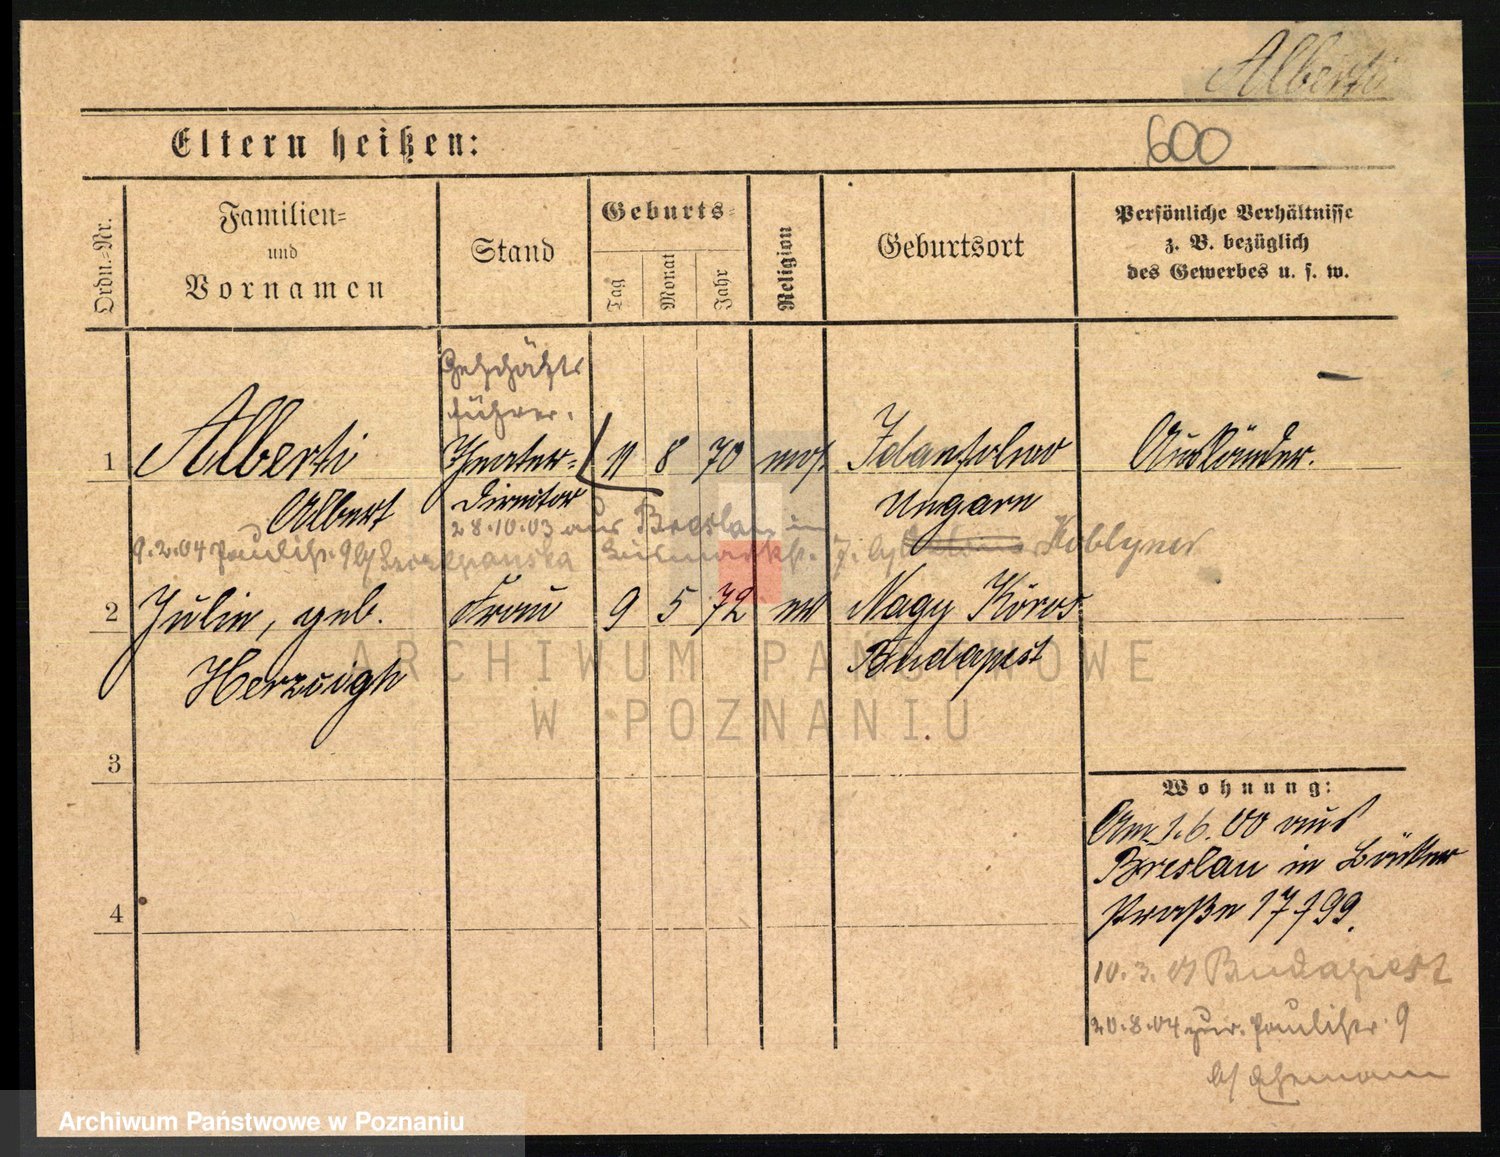 Alberti
Eltern heißen:
600
Ordn.-Nr.
Familien=
und
Vornamen
Stand
Geburts=
Tag
Monat
Jahr
Religion
Geburtsort
Persönliche Verhältnisse
z. B. bezüglich
des Gewerbes u. s. w.
Geschäfts
führer.
1
Alberti
Albert
Theater=
Director
11 8 70
mos.
Ungarn
Ausländer.
28.10.03 aus Breslau in
9.2.04 Paulistr. 9 b/ Szczepanska
2
Julie, geb.
Herzoigh
Frau
9 5 72
Nagy Körös
Budapest
ARCHIWUM PAŃSTWOWE
W POZNANIU
3
4
Wohnung:
Am 1.6.00 aus
Breslau in Bäcker
straße 17
10.3.01 Budapest
20.8.04 zur. Paulistr. 9
b/
Archiwum Państwowe w Poznaniu